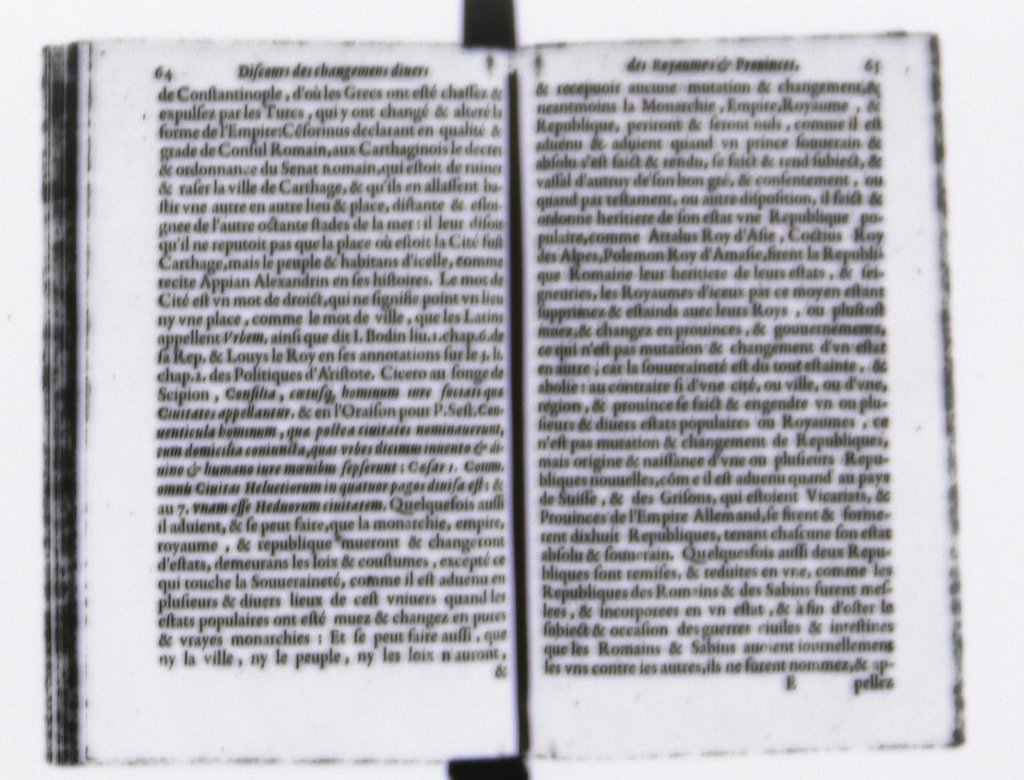 64 Discours des changemens diuers
de Constantinople, d'où les Grecs ont esté chassez &
expulsez par les Turcs, qui y ont changé & alteré la
forme de l'Empire: Césorinus declarant en qualité &
grade de Consul Romain, aux Carthaginois le decret
& ordonnance du Senat Romain, qui estoit de ruiner
& raser la ville de Carthage, & qu'ils en allassent ba-
stir vne autre en autre lieu & place, distante & esloi-
gnee de l'autre octante stades de la mer: il leur disoit
qu'il ne reputoit pas que la place où estoit la Cité fust
Carthage, mais le peuple & habitans d'icelle, comme
recite Appian Alexandrin en ses histoires. Le mot de
Cité est vn mot de droict, qui ne signifie point vn lieu
ny vne place, comme le mot de ville, que les Latins
appellent Vrbem, ainsi que dit I. Bodin liu. 1. chap. 6. de
sa Rep. & Louys le Roy en ses annotations sur le 3. li.
chap. 2. des Politiques d'Aristote. Cicero au songe de
Scipion, Consilia, cœtusq, hominum iure sociati que
Ciuitates appellantur. & en l'Oraison pour P. Sest. Con-
uenticula hominum, que postea ciuitates nominauerunt,
tum domicilia coniuncta, quas vrbes dicimus inuento & di-
uino & humano iure mœnibus sepserunt: Cæsar 1. Comm.
omnis Ciuitas Heluetiorum in quatuor pagos diuisa est: &
au 7. vnam esse Heduorum ciuitatem. Quelquesfois aussi
il aduient, & se peut faire, que la monarchie, empire,
royaume, & republique mueront & changeront
d'estats, demeurans les loix & coustumes, excepté ce
qui touche la Souueraineté, comme il est aduenu en
plusieurs & diuers lieux de cest vniuers quand les
estats populaires ont esté muez & changez en pures
& vrayes monarchies: Et se peut faire aussi, que
ny la ville, ny le peuple, ny les loix n'auront,
&
des Royaumes & Prouinces. 65
& recepuoir aucune mutation & changement, &
neantmoins la Monarchie, Empire, Royaume, &
Republique, periront & seront nuls, comme il est
aduenu & aduient quand vn prince souuerain &
absolu s'est faict & rendu, se faict & rend subiect, &
vassal d'autruy de son bon gré, & consentement, ou
quand par testament, ou autre disposition, il faict &
ordonne heritiere de son estat vne Republique po-
pulaire, comme Attalus Roy d'Asie, Coctius Roy
des Alpes, Polemon Roy d'Amasie, firent la Republi-
que Romaine leur heritiere de leurs estats, & sei-
gneuries, les Royaumes d'iceux par ce moyen estans
supprimez & estainds auec leurs Roys, ou plustost
muez, & changez en prouinces, & gouuernemens,
ce qui n'est pas mutation & changement d'vn estat
en autre; car la souueraineté est du tout estainte, &
abolie: au contraire si d'vne cité, ou ville, ou d'vne,
région, & prouince se faict & engendre vn ou plu-
sieurs & diuers estats populaires ou Royaumes, ce
n'est pas mutation & changement de Republiques,
mais origine & naissance d'vne ou plusieurs Repu-
bliques nouuelles, cõme il est aduenu quand au pays
de Suisse, & des Grisons, qui estoient Vicariats, &
Prouinces de l'Empire Allemand, se firent & forme-
rent dixhuit Republiques, tenant chascune son estat
absolu & souuerain. Quelquesfois aussi deux Repu-
bliques sont remises, & reduites en vne, comme les
Republiques des Romains & des Sabins furent mes-
lees, & incorporees en vn estat, & à fin d'oster le
subiect & occasion des guerres ciuiles & intestines
que les Romains & Sabins auoient iournellement
les vns contre les autres, ils ne furent nommez, & ap-
E pellez